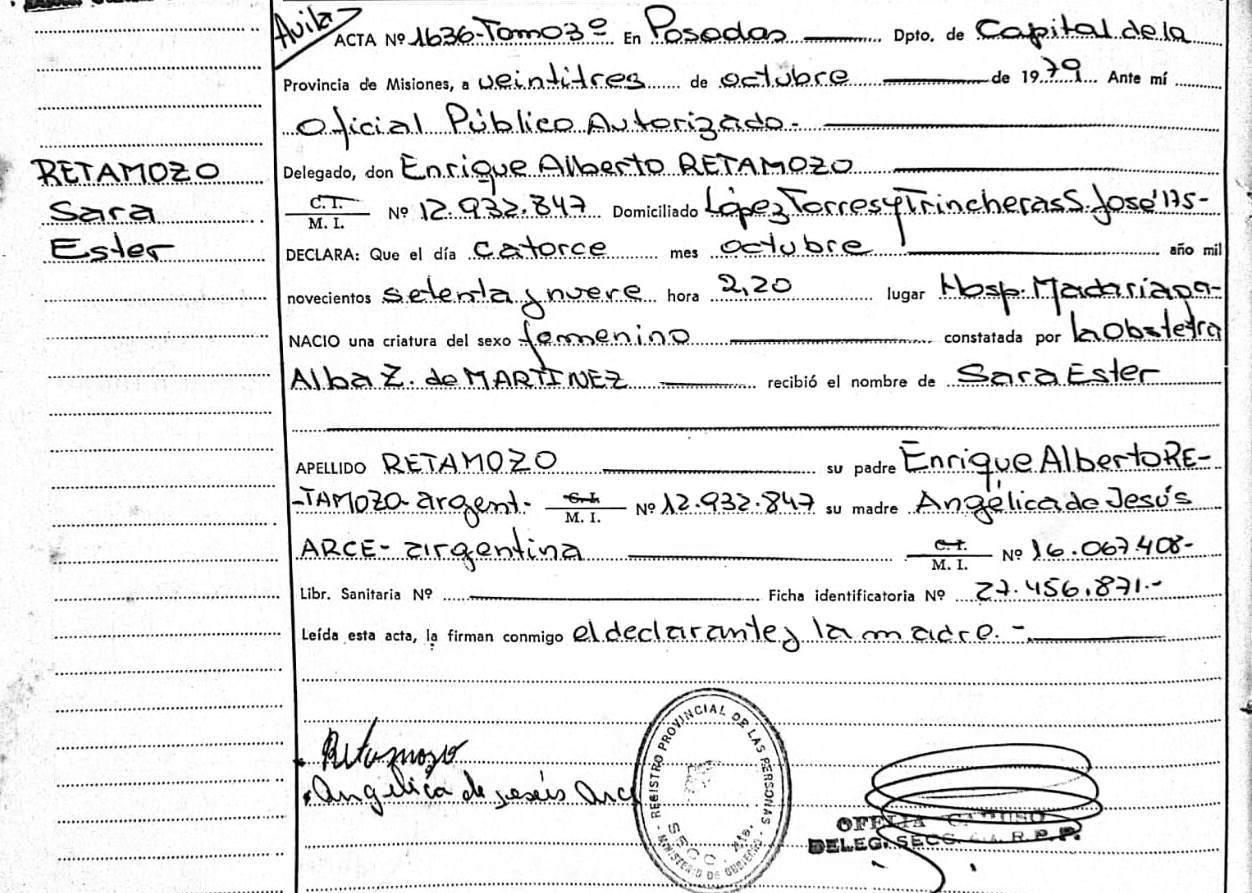 Avila
ACTA Nº 1636-Tomo 3º En Posadas Dpto. de Capital de la
Provincia de Misiones, a veintitres de octubre de 1979 Ante mí
Oficial Público Autorizado-
RETAMOZO
Sara
Ester
Delegado, don Enrique Alberto RETAMOZO
C.I.
M. I. Nº 12.932.847 Domiciliado López Torres y Trincheras S. José 175-
DECLARA: Que el día catorce mes octubre año mil
novecientos setenta y nueve hora 2,20 lugar Hosp. Madariaga-
NACIO una criatura del sexo femenino constatada por la Obstetra
Alba Z. de MARTINEZ recibió el nombre de Sara Ester
APELLIDO RETAMOZO su padre Enrique Alberto RE-
-TAMOZO- argent.- C.I.
M. I. Nº 12.932.847 su madre Angélica de Jesús
ARCE- argentina C.I.
M. I. Nº 16.067.408-
Libr. Sanitaria Nº Ficha identificatoria Nº 27.456.871.-
Leída esta acta, la firman conmigo el declarante y la madre.-
Retamozo
Angélica de jesús Arce
REGISTRO PROVINCIAL DE LAS PERSONAS
MINISTERIO DE GOBIERNO
SECC.
OFELIA
DELEG. SECC. R. P. P.